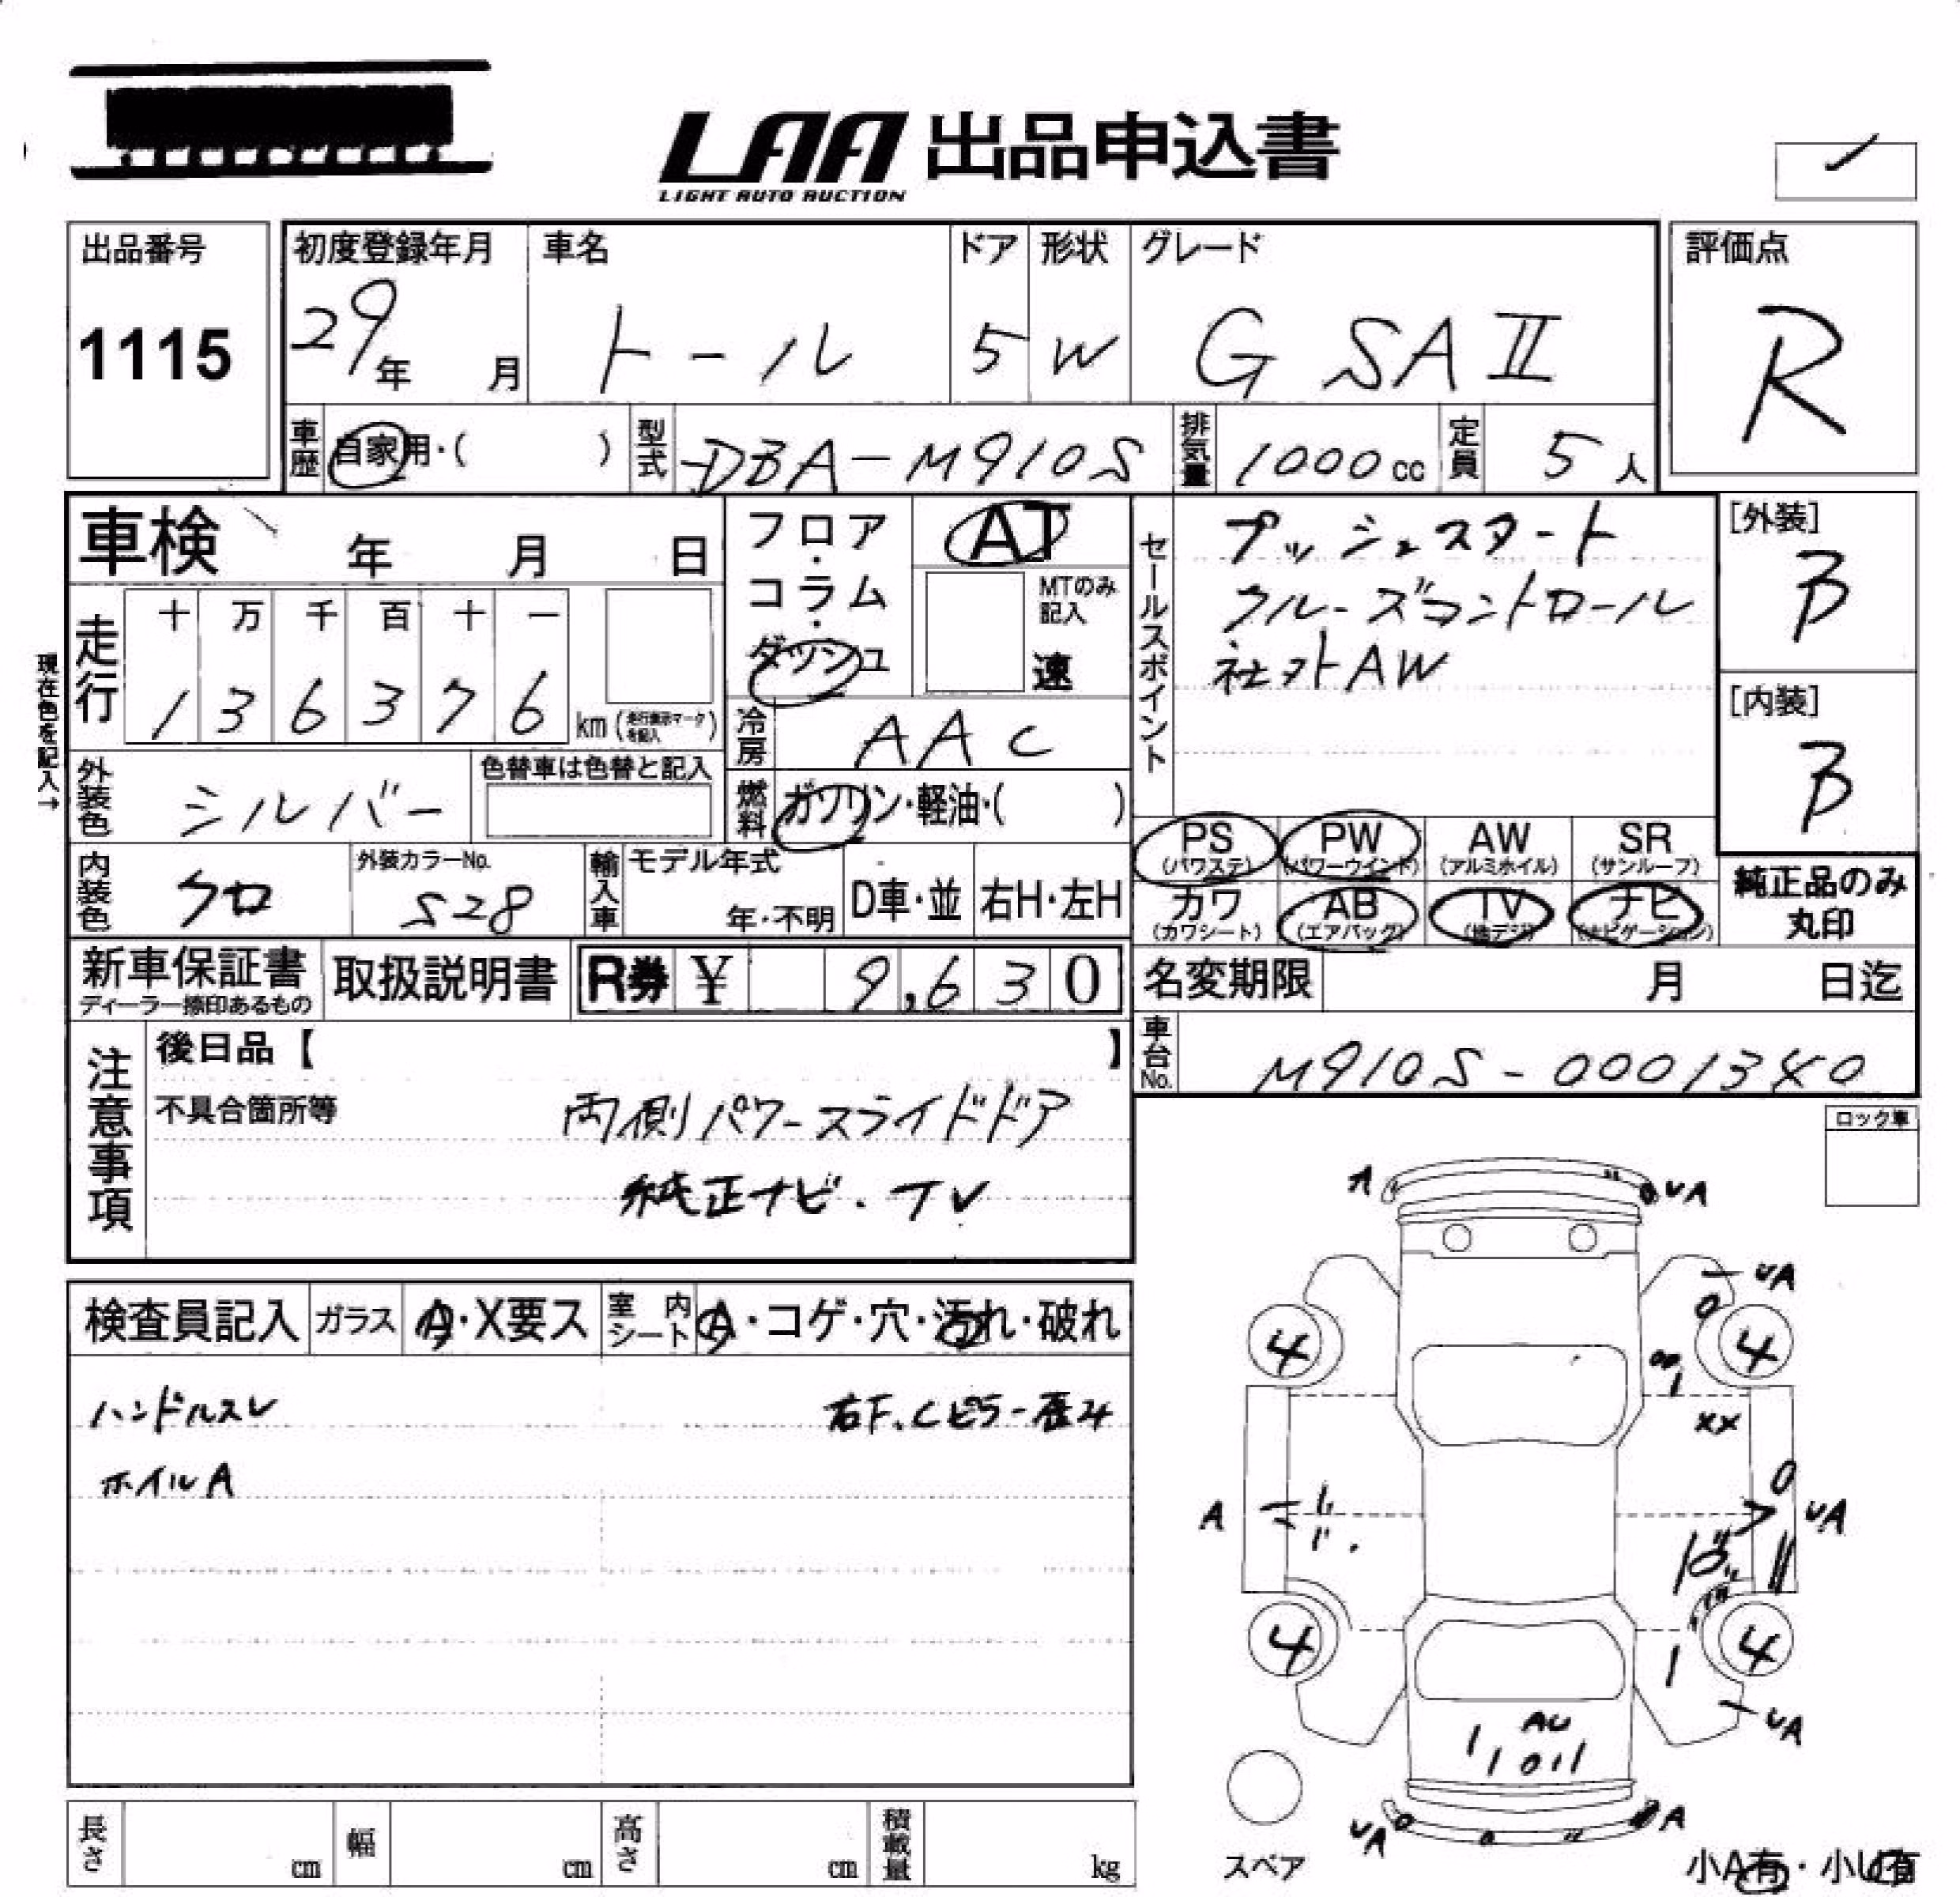 LAA 出品申込書
LIGHT AUTO AUCTION
出品番号 初度登録年月 車名 ドア 形状 グレード 評価点
1115 29年 月 トール 5 W G SAⅡ R
車歴 自家用・( ) 型式 DBA-M910S 排気量 1000cc 定員 5人
車検 年 月 日
フロア・コラム・ダッシュ
AT
MTのみ記入
速
セールスポイント
プッシュスタート
クルーズコントロール
社外AW
[外装]
B
[内装]
B
現在色を記入→
走行
十 万 千 百 十 一
1 3 6 3 7 6 km (走行表示マークを記入)
冷房 AAC
外装色 シルバー
色替車は色替と記入
燃料 ガソリン・軽油・( )
PS (パワステ) PW (パワーウインド) AW (アルミホイル) SR (サンルーフ)
カワ (カワシート) AB (エアバッグ) TV (地デジ) ナビ (ナビゲーション)
純正品のみ
丸印
内装色 クロ
外装カラーNo.
S28
輸入車 モデル年式
年・不明 D車・並 右H・左H
新車保証書
ディーラー捺印あるもの
取扱説明書 R券 ¥ 9,630
名変期限 月 日迄
車台No. M910S-0001340
注意事項
後日品【 】
不具合箇所等 両側パワースライドドア
純正ナビ・TV
ロック車
検査員記入 ガラス A・X要ス 室内シート A・コゲ・穴・汚れ・破れ
ハンドルスレ 右F.Cピラー歪み
ホイルA
A UA
UA
4 4
XX
A UA
4 4
UA
AU
UA A
スペア
小A有・小U有
長さ cm 幅 cm 高さ cm 積載量 kg